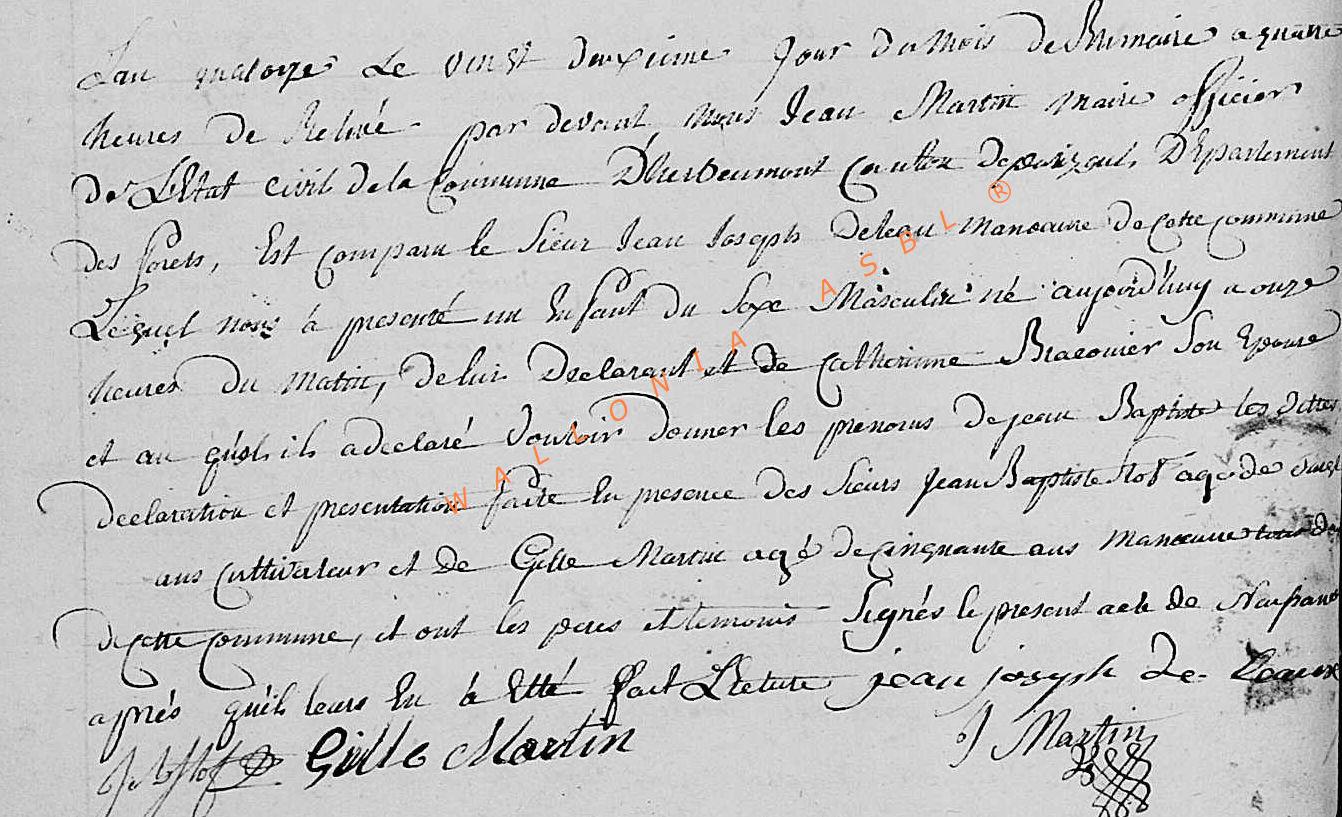 L'an quatorze Le vingt deuxieme Jour du Mois de Brumaire a quatre
heures de Relivé par devant Nous Jean Martin Maire officier
de L'Etat Civil de la Commune D'herbeumont Canton de Département
des forets, Est Comparu le Sieur Jean Joseph Deleau Manœuvre de Cette Commune
Lequel nous à presenté un Enfant du Sexe Masculin né aujourd'huy a onze
heures du Matin, de lui Declarant et de Catherinne Braconier Son Epouse
et au quel il a declaré Vouloir donner les prenoms de jean Baptiste les dittes
declaration et presentation faite En presence des Sieurs Jean Baptiste agé de vingt
ans Cultivateur et de Gille Martin agé de Cinquante ans Manœuvre tous de
de Cette Commune, et ont les peres et temoins Signés le present acte de Naissance
aprés qu'il leurs En à Etté fait Lecture jean joseph De Leaux
Gille Martin J Martin
WALLONIA ASBL ®